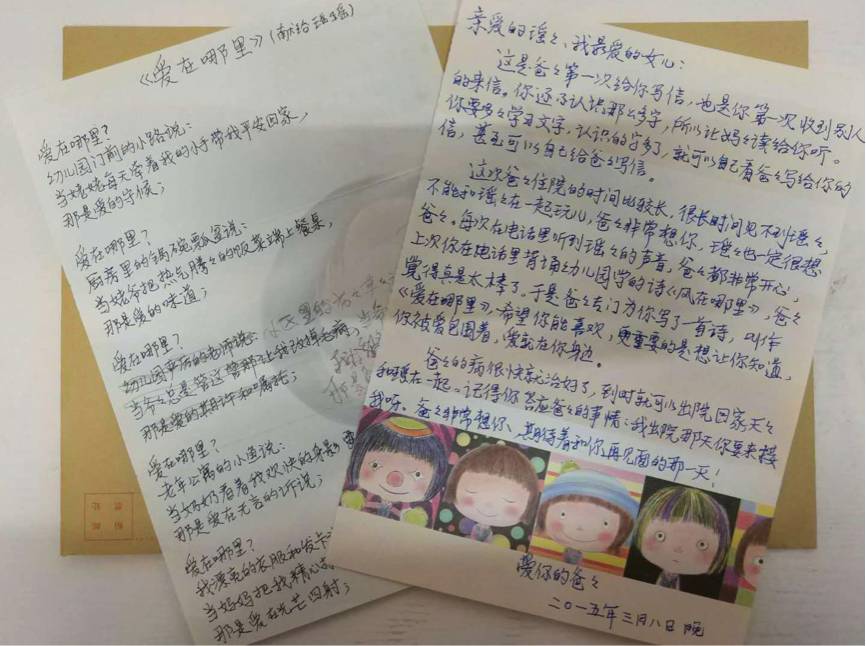 《爱在哪里》（献给瑶瑶）
爱在哪里？
幼儿园门前的小路说：
当姥姥每天牵着我的小手带我平安回家，
那是爱的守候；
爱在哪里？
厨房里的锅碗瓢盆说：
当姥爷把热气腾々的饭菜端上餐桌，
那是爱的味道；
爱在哪里？
当爷々总是管这管那让我改掉毛病，
那是爱的期许和嘱托；
爱在哪里？
老年公寓的小道说：
当奶奶看着我欢快的身影
那是爱在无言的诉说；
爱在哪里？
我漂亮的衣服和发卡
当妈妈把我精心
那是爱在光芒四射；
亲爱的瑶々、我最爱的女儿：
这是爸々第一次给你写信，也是你第一次收到别人
的来信。你还不认识那么多字，所以让妈々读给你听。
你要多々学习文字，认识的字多了，就可以自己看爸々写给你的
信，甚至可以自己给爸々写信。
这次爸々住院的时间比较长，很长时间见不到瑶々，
不能和瑶々在一起玩儿，爸々非常想你，瑶々也一定很想
爸々。每次在电话里听到瑶々的声音，爸々都非常开心，
上次你在电话里背诵幼儿园学的诗《风在哪里》，爸々
觉得真是太棒了。于是爸々专门为你写了一首诗，叫作
《爱在哪里》，希望你能喜欢，更重要的是想让你知道，
你被爱包围着，爱就在你身边。
爸々的病很快就治好了，到时就可以出院回家天々
和瑶々在一起。记得你答应爸々的事情：我出院那天你要来接
我呀。爸々非常想你、期待着和你再见面的那一天！
爱你的爸々
二〇一五年三月八日 晚